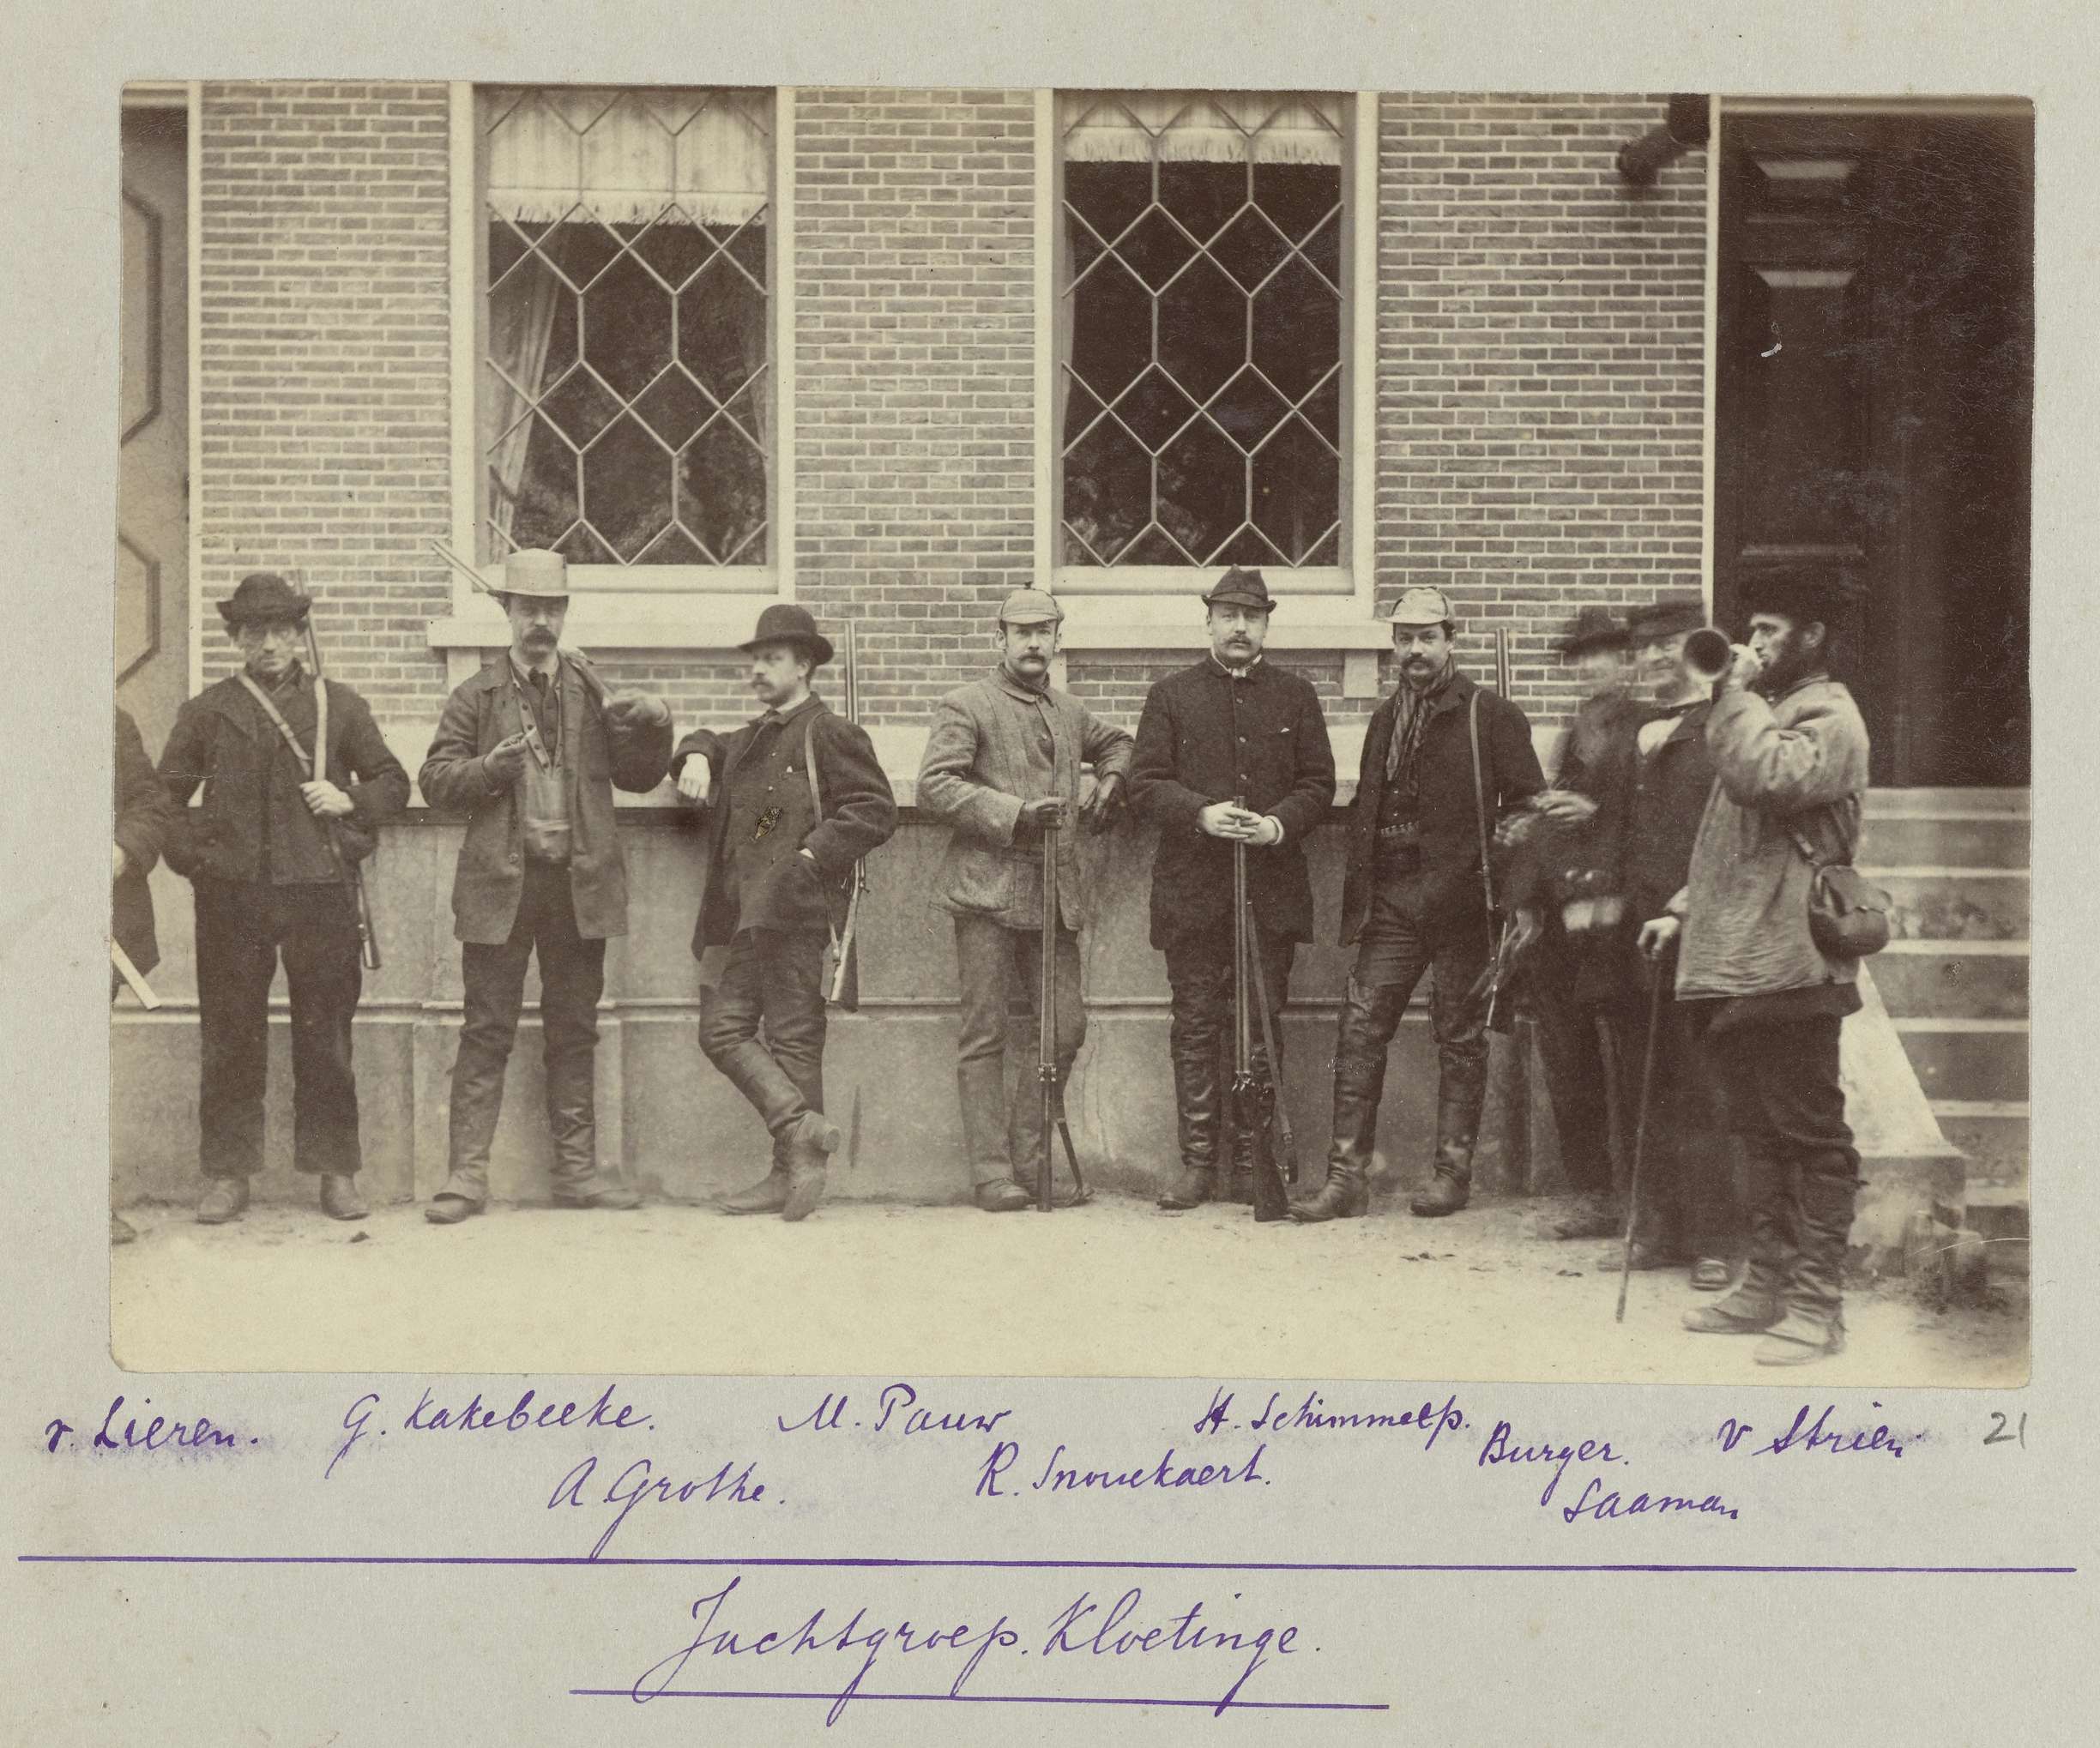 v. Lieren. G. Kakebeeke. M. Pauw H. Schimmelp. Burger. v Strien 21
A Grothe. R. Snouckaert. Saaman
Jachtgroep. Kloetinge.